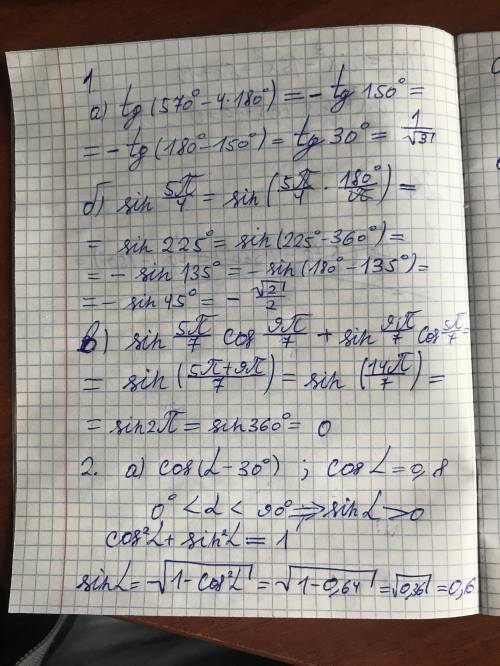 1.
а) tg (570° - 4·180°) = - tg 150° =
= - tg (180° - 150°) = tg 30° = 1/√3
б) sin 5π/4 = sin (5π/4 · 180°/π) =
= sin 225° = sin (225° - 360°) =
= - sin 135° = - sin (180° - 135°) =
= - sin 45° = - √2/2
в) sin 5π/7 cos 9π/7 + sin 9π/7 cos 5π/7 =
= sin (5π+9π/7) = sin (14π/7) =
= sin 2π = sin 360° = 0
2. а) cos (α - 30°) ; cos α = 0,8
0° < α < 90° ⇒ sin α > 0
cos²α + sin²α = 1
sin α = √1 - cos²α = √1 - 0,64 = √0,36 = 0,6